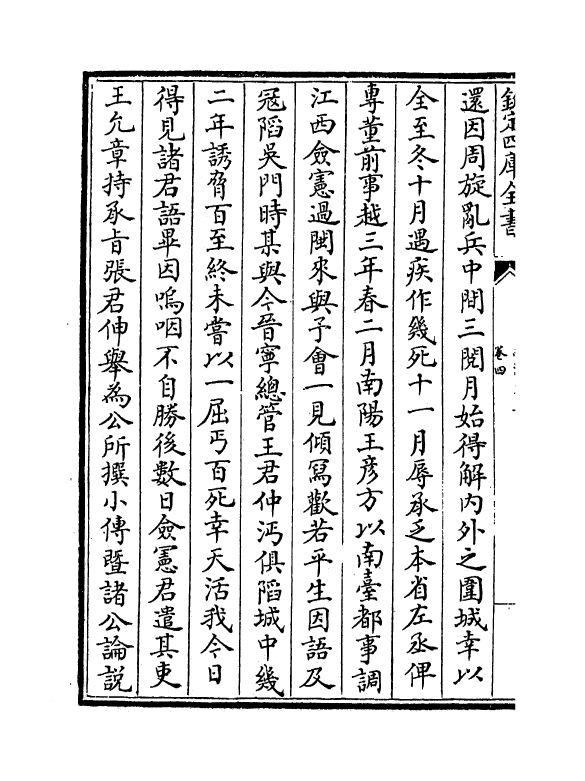 欽定四庫全書
卷四
還因周旋亂兵中閒三閱月始得解内外之圍城幸以
全至冬十月遇疾作幾死十一月辱承乏本省左丞俾
專董前事越三年春二月南陽王彦方以南臺都事調
江西僉憲過閩來與予會一見傾寫歡若平生因語及
冦陷吳門時某與今晉寧總管王君仲沔俱陷城中幾
二年誘脅百至終未嘗以一屈丐百死幸天活我今日
得見諸君語畢因嗚咽不自勝後數日僉憲君遣其吏
王允章持承㫖張君仲舉為公所撰小傳暨諸公論説